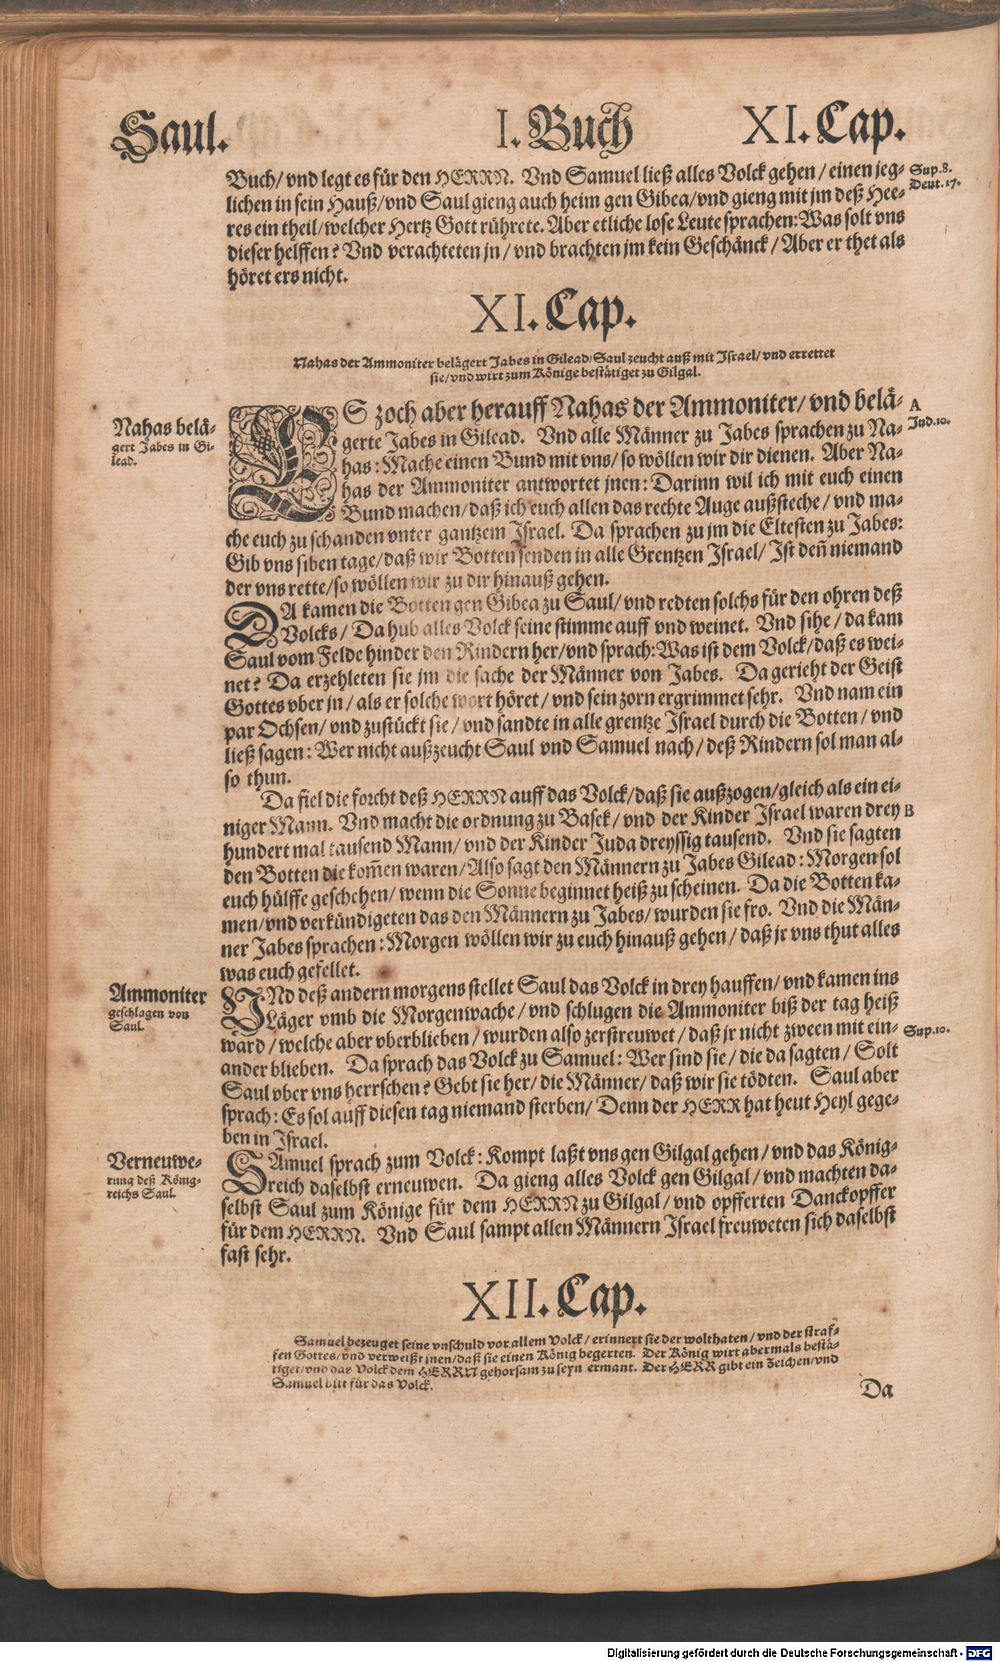 Saul. I. Buch XI. Cap.
Buch/ vnd legt es für den HERRN. Vnd Samuel ließ alles Volck gehen / einen jeg-
lichen in sein Hauß/ vnd Saul gieng auch heim gen Gibea/ vnd gieng mit jm deß Hee-
res ein theil/ welcher Hertz Gott rührete. Aber etliche lose Leute sprachen: Was solt vns
dieser helffen? Vnd verachteten jn / vnd brachten jm kein Geschänck / Aber er thet als
höret ers nicht.
Sup.8.
Deut.17.
XI. Cap.
Nahas der Ammoniter belägert Jabes in Gilead/ Saul zeucht auß mit Israel/ vnd errettet
sie/ vnd wirt zum Könige bestätiget zu Gilgal.
Nahas belä-
gert Jabes in Gi-
lead.
ES zoch aber herauff Nahas der Ammoniter/ vnd belä-
gerte Jabes in Gilead. Vnd alle Männer zu Jabes sprachen zu Na-
has: Mache einen Bund mit vns/ so wöllen wir dir dienen. Aber Na-
has der Ammoniter antwortet jnen: Darinn wil ich mit euch einen
Bund machen/ daß ich euch allen das rechte Auge außsteche / vnd ma-
che euch zu schanden vnter gantzem Israel. Da sprachen zu jm die Eltesten zu Jabes:
Gib vns siben tage/ daß wir Botten senden in alle Grentzen Israel/ Ist deñ niemand
der vns rette/ so wöllen wir zu dir hinauß gehen.
A
Jud.10.
DA kamen die Botten gen Gibea zu Saul/ vnd redten solchs für den ohren deß
Volcks / Da hub alles Volck seine stimme auff vnd weinet. Vnd sihe / da kam
Saul vom Felde hinder den Rindern her/ vnd sprach: Was ist dem Volck/ daß es wei-
net? Da erzehleten sie jm die sache der Männer von Jabes. Da gerieht der Geist
Gottes vber jn / als er solche wort höret / vnd sein zorn ergrimmet sehr. Vnd nam ein
par Ochsen/ vnd zustückt sie / vnd sandte in alle grentze Israel durch die Botten / vnd
ließ sagen: Wer nicht außzeucht Saul vnd Samuel nach/ deß Rindern sol man al-
so thun.
Da fiel die forcht deß HERRN auff das Volck/ daß sie außzogen/ gleich als ein ei-
niger Mann. Vnd macht die ordnung zu Basek/ vnd der Kinder Israel waren drey
hundert mal tausend Mann/ vnd der Kinder Juda dreyssig tausend. Vnd sie sagten
den Botten die kom̃en waren/ Also sagt den Männern zu Jabes Gilead: Morgen sol
euch hülffe geschehen/ wenn die Sonne beginnet heiß zu scheinen. Da die Botten ka-
men/ vnd verkündigeten das den Männern zu Jabes/ wurden sie fro. Vnd die Män-
ner Jabes sprachen: Morgen wöllen wir zu euch hinauß gehen / daß jr vns thut alles
was euch gefellet.
B
Ammoniter
geschlagen von
Saul.
VNd deß andern morgens stellet Saul das Volck in drey hauffen/ vnd kamen ins
Läger vmb die Morgenwache/ vnd schlugen die Ammoniter biß der tag heiß
ward / welche aber vberblieben / wurden also zerstreuwet / daß jr nicht zween mit ein-
ander blieben. Da sprach das Volck zu Samuel: Wer sind sie / die da sagten / Solt
Saul vber vns herrschen? Gebt sie her/ die Männer/ daß wir sie tödten. Saul aber
sprach: Es sol auff diesen tag niemand sterben/ Denn der HERR hat heut Heyl gege-
ben in Israel.
Sup.10.
Verneuwe-
rung deß König-
reichs Saul.
SAmuel sprach zum Volck: Kompt laßt vns gen Gilgal gehen/ vnd das König-
reich daselbst erneuwen. Da gieng alles Volck gen Gilgal/ vnd machten da-
selbst Saul zum Könige für dem HERRN zu Gilgal/ vnd opfferten Danckopffer
für dem HERRN. Vnd Saul sampt allen Männern Israel freuweten sich daselbst
fast sehr.
XII. Cap.
Samuel bezeuget seine vnschuld vor allem Volck / erinnert sie der wolthaten / vnd der straf-
fen Gottes/ vnd verweißt jnen/ daß sie einen König begerten. Der König wirt abermals bestä-
tiget/ vnd das Volck dem HERRN gehorsam zu seyn ermant. Der HERR gibt ein Zeichen/ vnd
Samuel bitt für das Volck.
Da
Digitalisierung gefördert durch die Deutsche Forschungsgemeinschaft - DFG